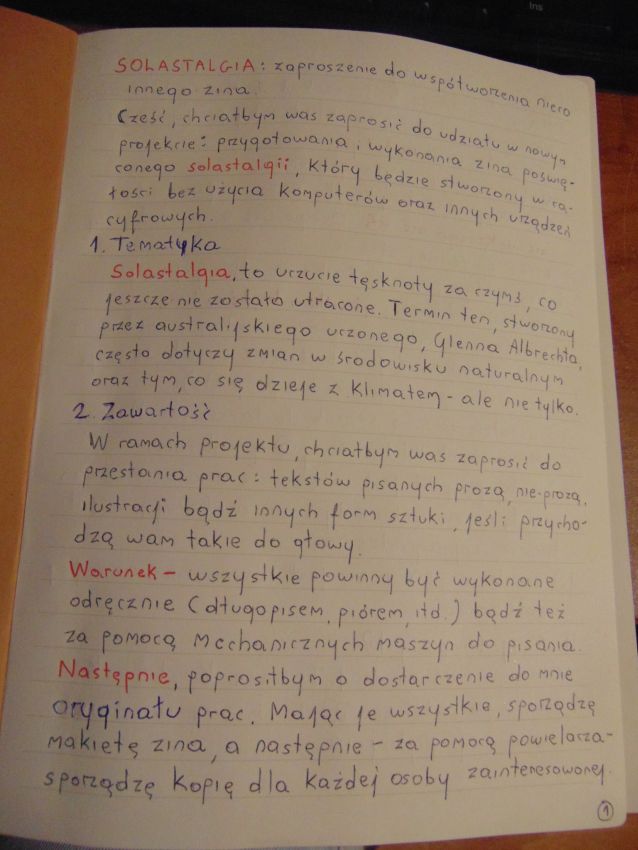 SOLASTALGIA: zaproszenie do współtworzenia nieco
innego zina.
Cześć, chciałbym was zaprosić do udziału w nowym
projekcie: przygotowania i wykonania zina poświę-
conego solastalgii, który będzie stworzony w ca-
łości bez użycia komputerów oraz innych urządzeń
cyfrowych.
1. Tematyka
Solastalgia, to uczucie tęsknoty za czymś, co
jeszcze nie zostało utracone. Termin ten, stworzony
przez australijskiego uczonego, Glenna Albrechta,
często dotyczy zmian w środowisku naturalnym
oraz tym, co się dzieje z klimatem - ale nie tylko.
2. Zawartość
W ramach projektu, chciałbym was zaprosić do
przesłania prac: tekstów pisanych prozą, nie-prozą,
ilustracji bądź innych form sztuki, jeśli przycho-
dzą wam takie do głowy.
Warunek - wszystkie powinny być wykonane
odręcznie (długopisem, piórem, itd.) bądź też
za pomocą mechanicznych maszyn do pisania.
Następnie, poprosiłbym o dostarczenie do mnie
oryginału prac. Mając je wszystkie, sporządzę
makietę zina, a następnie - za pomocą powielacza-
sporządzę kopię dla każdej osoby zainteresowanej.
1
Ins